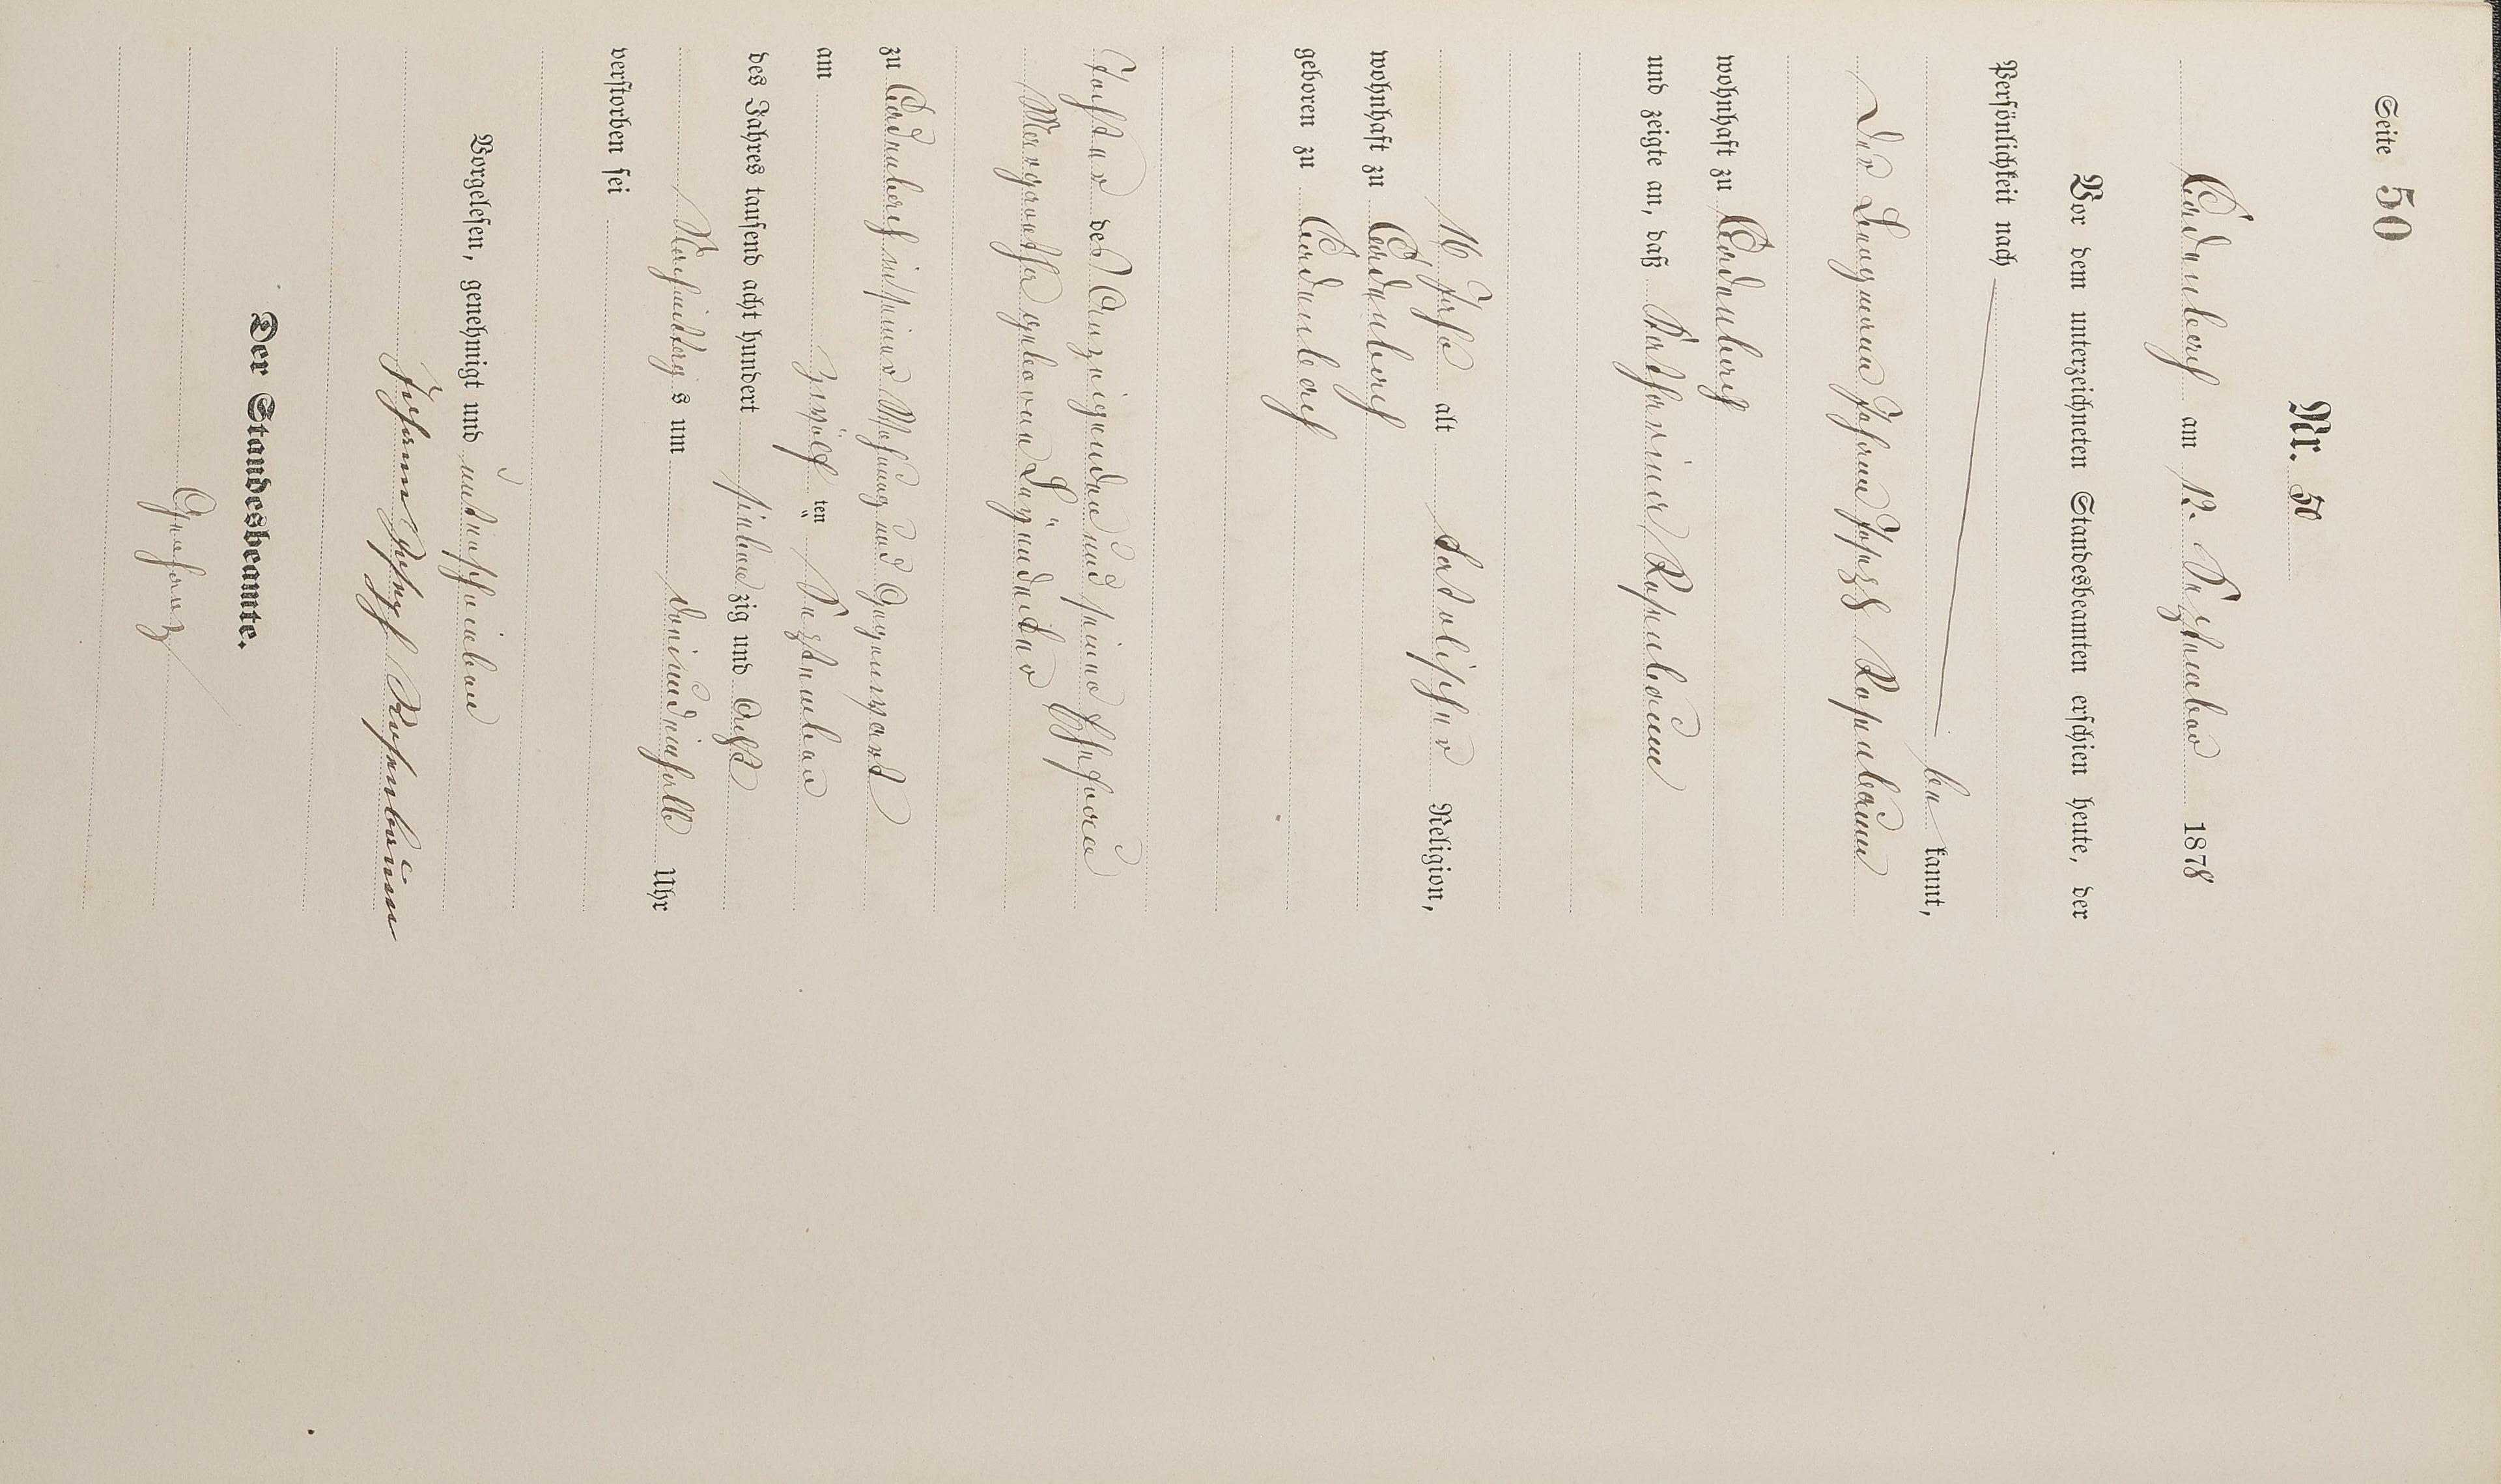 Seite 50
Nr. 50
am 12. September 1878
Vor dem unterzeichneten Standesbeamten erschien heute, der
Persönlichkeit nach
be kannt,
Der Bergmann Johann Joseph Rosenbaum
wohnhaft zu
und zeigte an, daß Katharina Rosenbaum
16 Jahre alt katholischer Religion,
wohnhaft zu
geboren zu
Tochter des Anzeigenden und seiner Ehefrau
Margaretha geborene
zu in seiner Wohnung und Gegenwart
am zwölf ten September
des Jahres tausend acht hundert sieben zig und acht
Nachmittag s um dreiundeinhalb Uhr
verstorben sei
Vorgelesen, genehmigt und unterschrieben
Johann Joseph Rosenbaum
Der Standesbeamte.